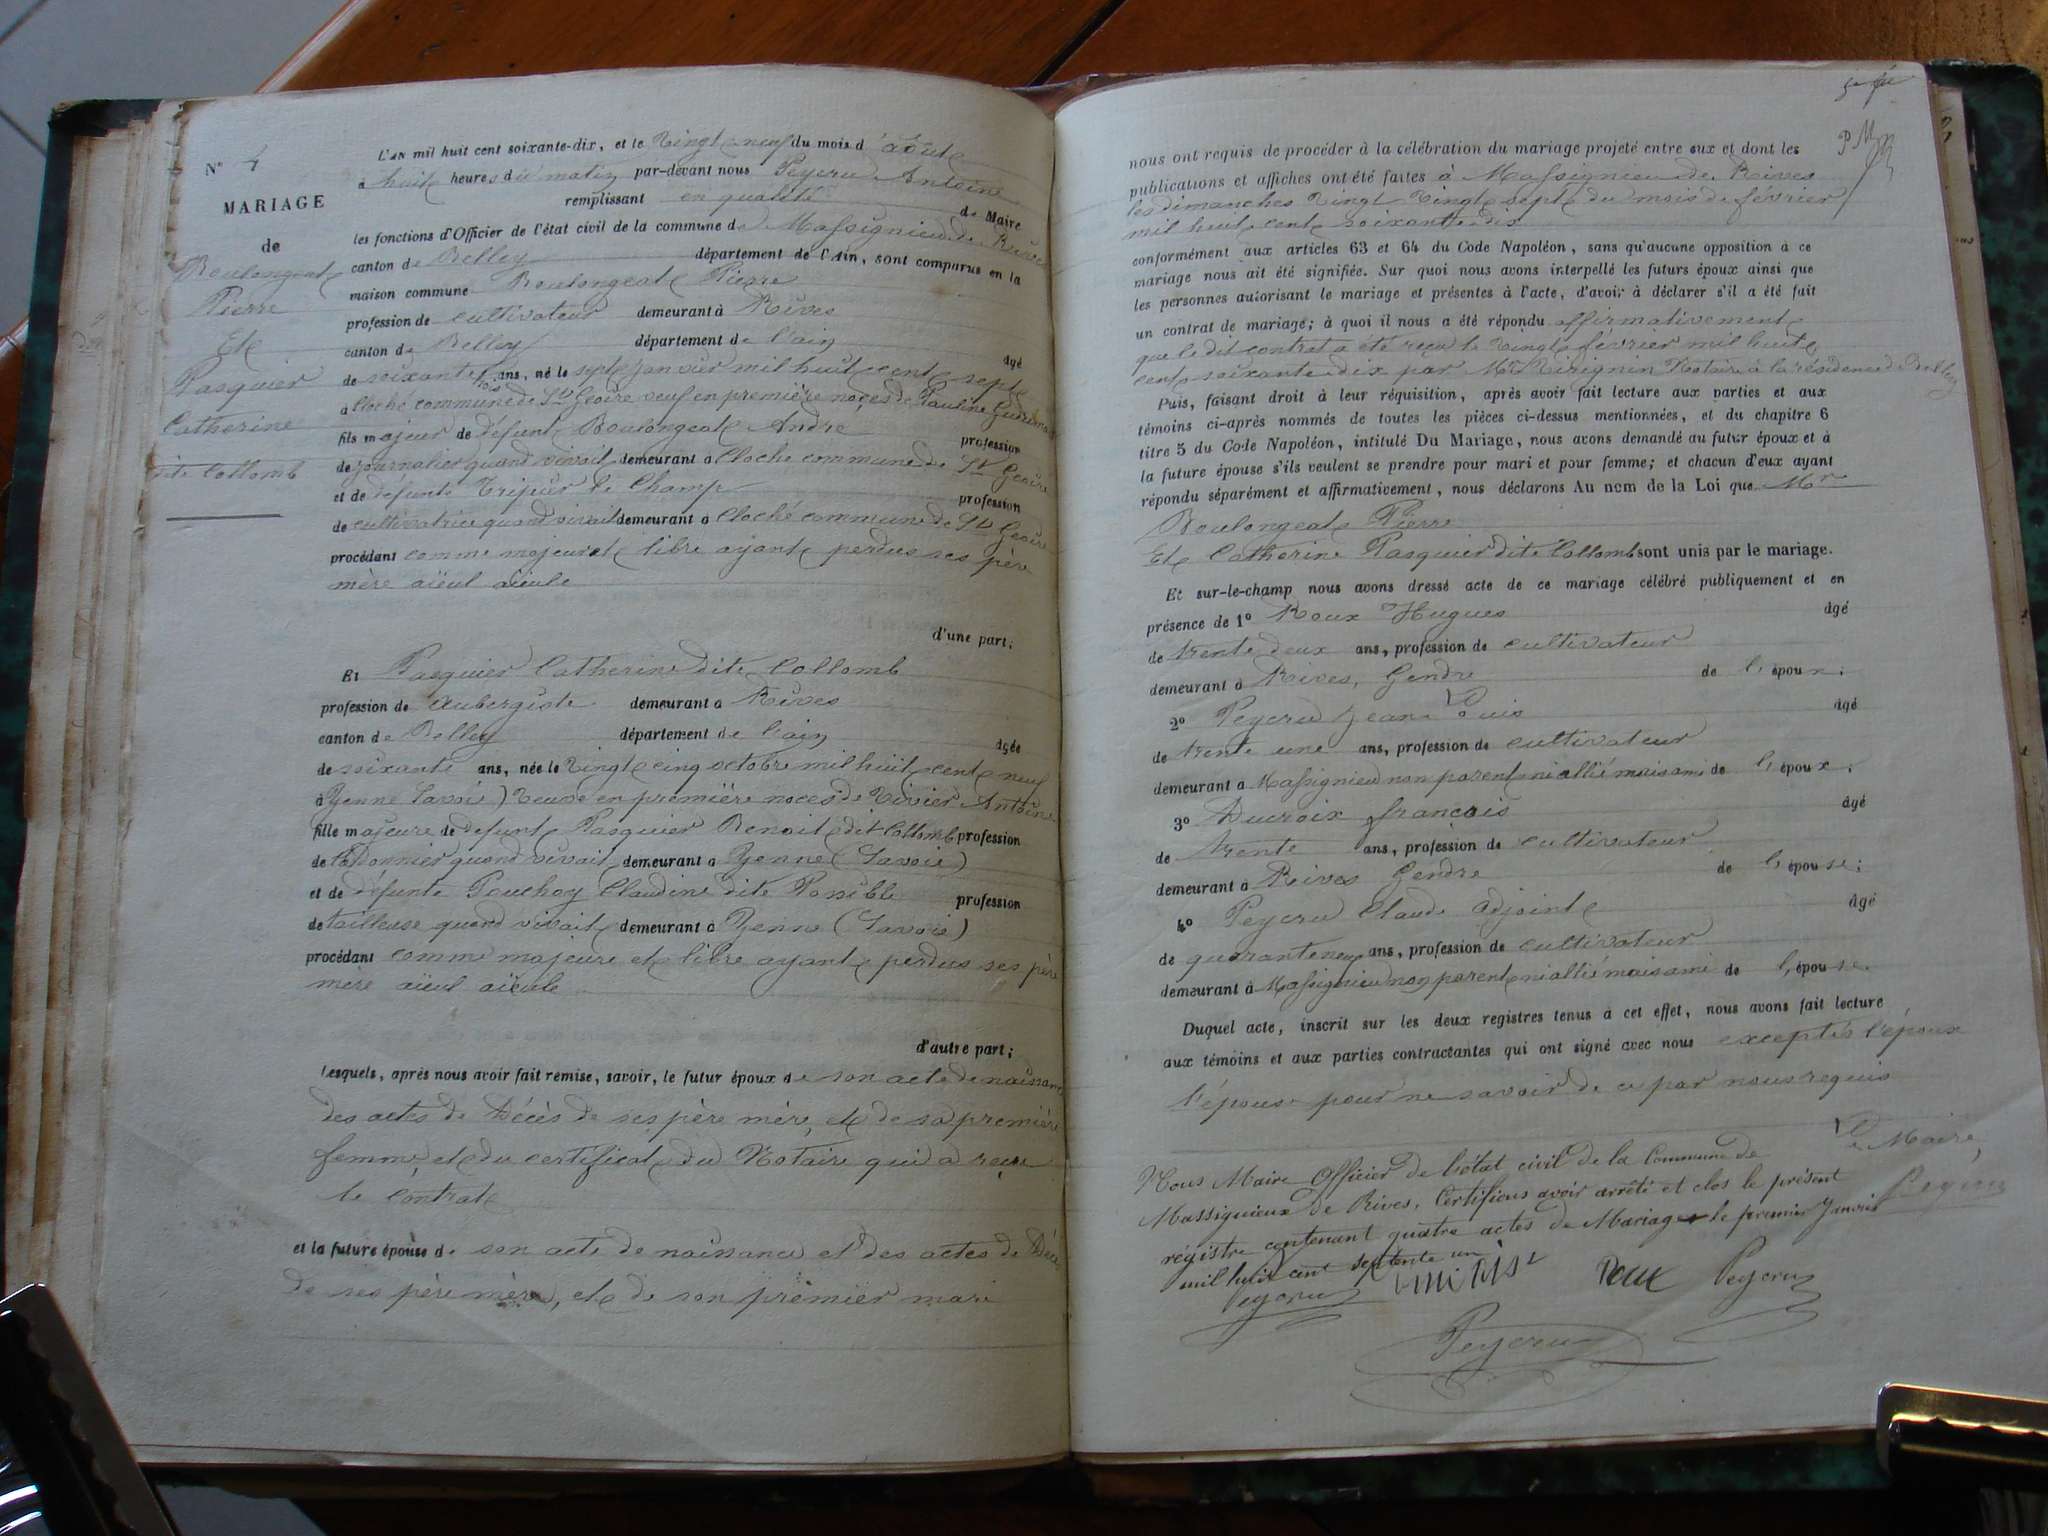 N° 4
MARIAGE
de
Boulongeat
Pierre
Et
Pasquier
Catherine
dite Collomb
L'AN mil huit cent soixante-dix, et le Vingt neuf du mois d'août
à huit heures du matin par-devant nous Peycru Antoine
remplissant en qualité de Maire
les fonctions d'Officier de l'état civil de la commune de Massignieu de Rives
canton de Belley département de l'Ain, sont comparus en la
maison commune Boulongeat Pierre
profession de cultivateur demeurant à Rives
canton de Belley département de l'ain
âgé
de soixante trois ans, né le sept janvier mil huit cent sept
à Cloché commune de St Geoire veuf en première noces de Pauline
fils majeur de défunt Boulongeat André profession
de journalier quand vivait demeurant à Cloché commune de St Geoire
et de défunte le Champ profession
de cultivatrice quand vivait demeurant à Cloché commune de St Geoire
procédant comme majeur et libre ayant perdus ses père
mère aïeul aïeule
d'une part;
Et Pasquier Catherine dite Collomb
profession de Aubergiste demeurant à Rives
canton de Belley département de l'ain
âgée
de soixante ans, née le Vingt cinq octobre mil huit cent neuf
à Yenne (Savoie) Veuve en première noces de Vivier Antoine
fille majeure de defunt Pasquier Benoit dit Collomb profession
de quand vivait demeurant à Yenne (Savoie)
et de défunte Pouchoy Claudine dite Possible profession
de tailleuse quand vivait demeurant à Yenne (Savoie)
procédant comme majeure et libre ayant perdus ses père
mère aïeul aïeule
d'autre part;
Lesquels, après nous avoir fait remise, savoir, le futur époux de son acte de naissance
des actes de Décès de ses père mère, et de sa première
femme, et du certificat du Notaire qui a reçu
le contrat
et la future épouse de son acte de naissance et des actes de Décès
de ses père mère, et de son premier mari
nous ont requis de procéder à la célébration du mariage projeté entre eux et dont les
publications et affiches ont été faites à Massignieu de Rives
les dimanches Vingt Vingt sept du mois de février
mil huit cent soixante dix
conformément aux articles 63 et 64 du Code Napoléon, sans qu'aucune opposition à ce
mariage nous ait été signifiée. Sur quoi nous avons interpellé les futurs époux ainsi que
les personnes autorisant le mariage et présentes à l'acte, d'avoir à déclarer s'il a été fait
un contrat de mariage; à quoi il nous a été répondu affirmativement
que le dit contrat a été reçu le Vingt février mil huit
cent soixante dix par Me Notaire à la résidence de Belley
Puis, faisant droit à leur réquisition, après avoir fait lecture aux parties et aux
témoins ci-après nommés de toutes les pièces ci-dessus mentionnées, et du chapitre 6
titre 5 du Code Napoléon, intitulé Du Mariage, nous avons demandé au futur époux et à
la future épouse s'ils veulent se prendre pour mari et pour femme; et chacun d'eux ayant
répondu séparément et affirmativement, nous déclarons Au nom de la Loi que Mr
Boulongeat Pierre
Et Catherine Pasquier dite Collomb sont unis par le mariage.
Et sur-le-champ nous avons dressé acte de ce mariage célébré publiquement et en
présence de 1° Roux Hugues âgé
de trente deux ans, profession de cultivateur
demeurant à Rives, Gendre de l'époux;
2° Peycru Jean Louis âgé
de trente une ans, profession de cultivateur
demeurant à Massignieu non parent ni allié mais ami de l'époux;
3° Ducroix françois âgé
de trente ans, profession de cultivateur
demeurant à Rives Gendre de l'épouse;
4° Peycru Claude adjoint âgé
de quarante neuf ans, profession de cultivateur
demeurant à Massignieu non parent ni allié mais ami de l'épouse.
Duquel acte, inscrit sur les deux registres tenus à cet effet, nous avons fait lecture
aux témoins et aux parties contractantes qui ont signé avec nous exceptés l'époux
l'épouse pour ne savoir de ce par nous requis
Le Maire,
Peycru
Nous Maire Officier de l'état civil de la Commune de
Massignieux de Rives, Certifions avoir arrêté et clos le présent
régistre contenant quatre actes de Mariages le premier Janvier
mil huit cent septente un
Peycru Roux Peycru
Peycru